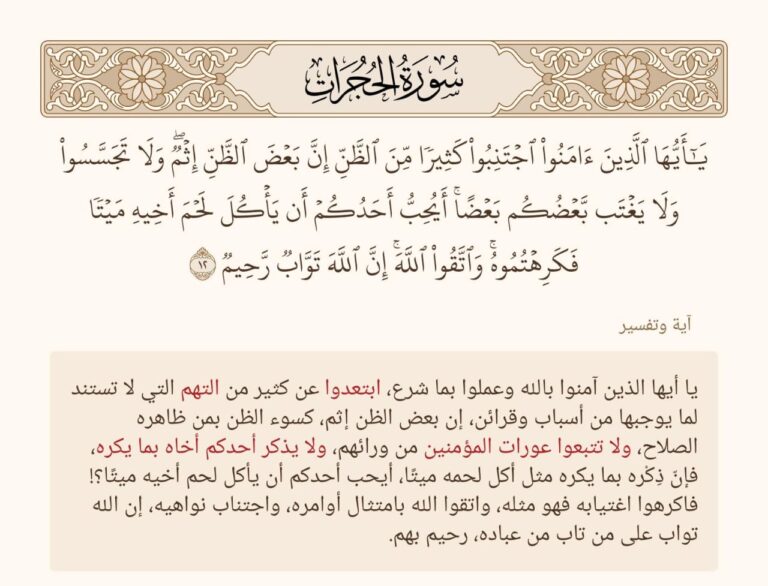 سُورَةُ الحُجُرَاتِ
يَـٰٓأَيُّهَا ٱلَّذِينَ ءَامَنُوا۟ ٱجْتَنِبُوا۟ كَثِيرًا مِّنَ ٱلظَّنِّ إِنَّ بَعْضَ ٱلظَّنِّ إِثْمٌ ۖ وَلَا تَجَسَّسُوا۟
وَلَا يَغْتَب بَّعْضُكُم بَعْضًا ۚ أَيُحِبُّ أَحَدُكُمْ أَن يَأْكُلَ لَحْمَ أَخِيهِ مَيْتًا
فَكَرِهْتُمُوهُ ۚ وَٱتَّقُوا۟ ٱللَّهَ ۚ إِنَّ ٱللَّهَ تَوَّابٌ رَّحِيمٌ ١٢
آية وتفسير
يا أيها الذين آمنوا بالله وعملوا بما شرع، ابتعدوا عن كثير من التهم التي لا تستند
لما يوجبها من أسباب وقرائن، إن بعض الظن إثم، كسوء الظن بمن ظاهره
الصلاح، ولا تتبعوا عورات المؤمنين من ورائهم، ولا يذكر أحدكم أخاه بما يكره،
فإنّ ذِكْره بما يكره مثل أكل لحمه ميتًا، أيحب أحدكم أن يأكل لحم أخيه ميتًا؟!
فاكرهوا اغتيابه فهو مثله، واتقوا الله بامتثال أوامره، واجتناب نواهيه، إن الله
تواب على من تاب من عباده، رحيم بهم.